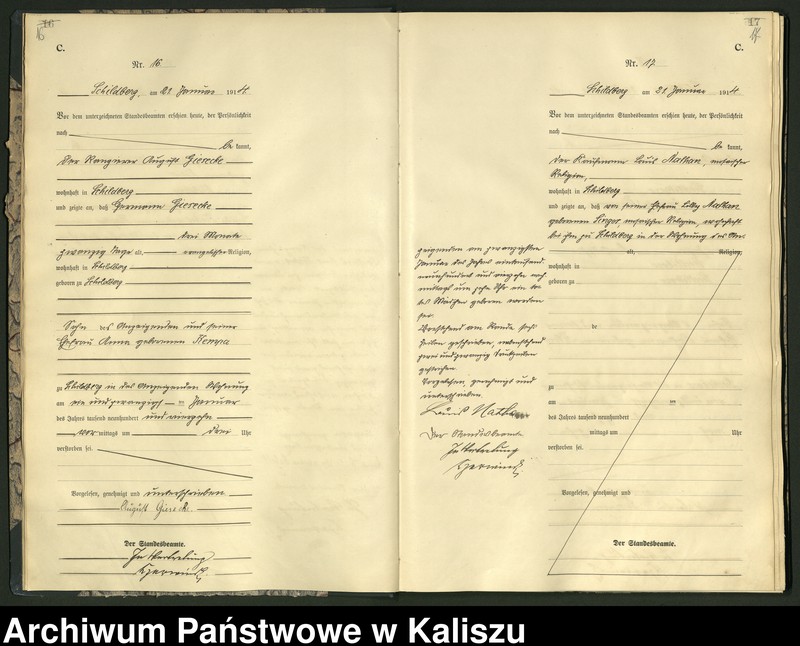 16
C.
Nr. 16
Schildberg, am 21. Januar 1914
Vor dem unterzeichneten Standesbeamten erschien heute, der Persönlichkeit
nach
be kannt,
der Rangierer August Gierecke
wohnhaft in Schildberg
und zeigte an, daß Hermann Gierecke
drei Monate
zwanzig Tage alt, evangelischer Religion,
wohnhaft in Schildberg
geboren zu Schildberg
Sohn des Anzeigenden und seiner
Ehefrau Anna geborenen Kempa
zu Schildberg in des Anzeigenden Wohnung
am ein und zwanzigsten Januar
des Jahres tausend neunhundert und vierzehn
vor mittags um drei Uhr
verstorben sei.
Vorgelesen, genehmigt und unterschrieben
August Gierecke
Der Standesbeamte.
In Vertretung
17
C.
Nr. 17
Schildberg am 21. Januar 1914
Vor dem unterzeichneten Standesbeamten erschien heute, der Persönlichkeit
nach
be kannt,
der Kaufmann Louis Nathan, mosaischer
Religion,
wohnhaft in Schildberg
und zeigte an, daß von seiner Ehefrau Nathan
geborenen mosaischer Religion, wohnhaft
bei ihm zu Schildberg in der Wohnung des An-
alt, Religion,
wohnhaft in
geboren zu
de
zu
am ten
des Jahres tausend neunhundert
mittags um Uhr
verstorben sei.
Vorgelesen, genehmigt und
Der Standesbeamte.
zeigenden am zwanzigsten
Januar des Jahres eintausend
neunhundert und vierzehn nach
mittags um zehn Uhr ein to-
tes Mädchen geboren worden
sei.
Vorstehend am Rande sechs
Zeilen geschrieben, nebenstehend
zwei und zwanzig Druckzeilen
gestrichen.
Vorgelesen, genehmigt und
unterschrieben.
Louis Nathan
Der Standesbeamte
In Vertretung
Archiwum Państwowe w Kaliszu